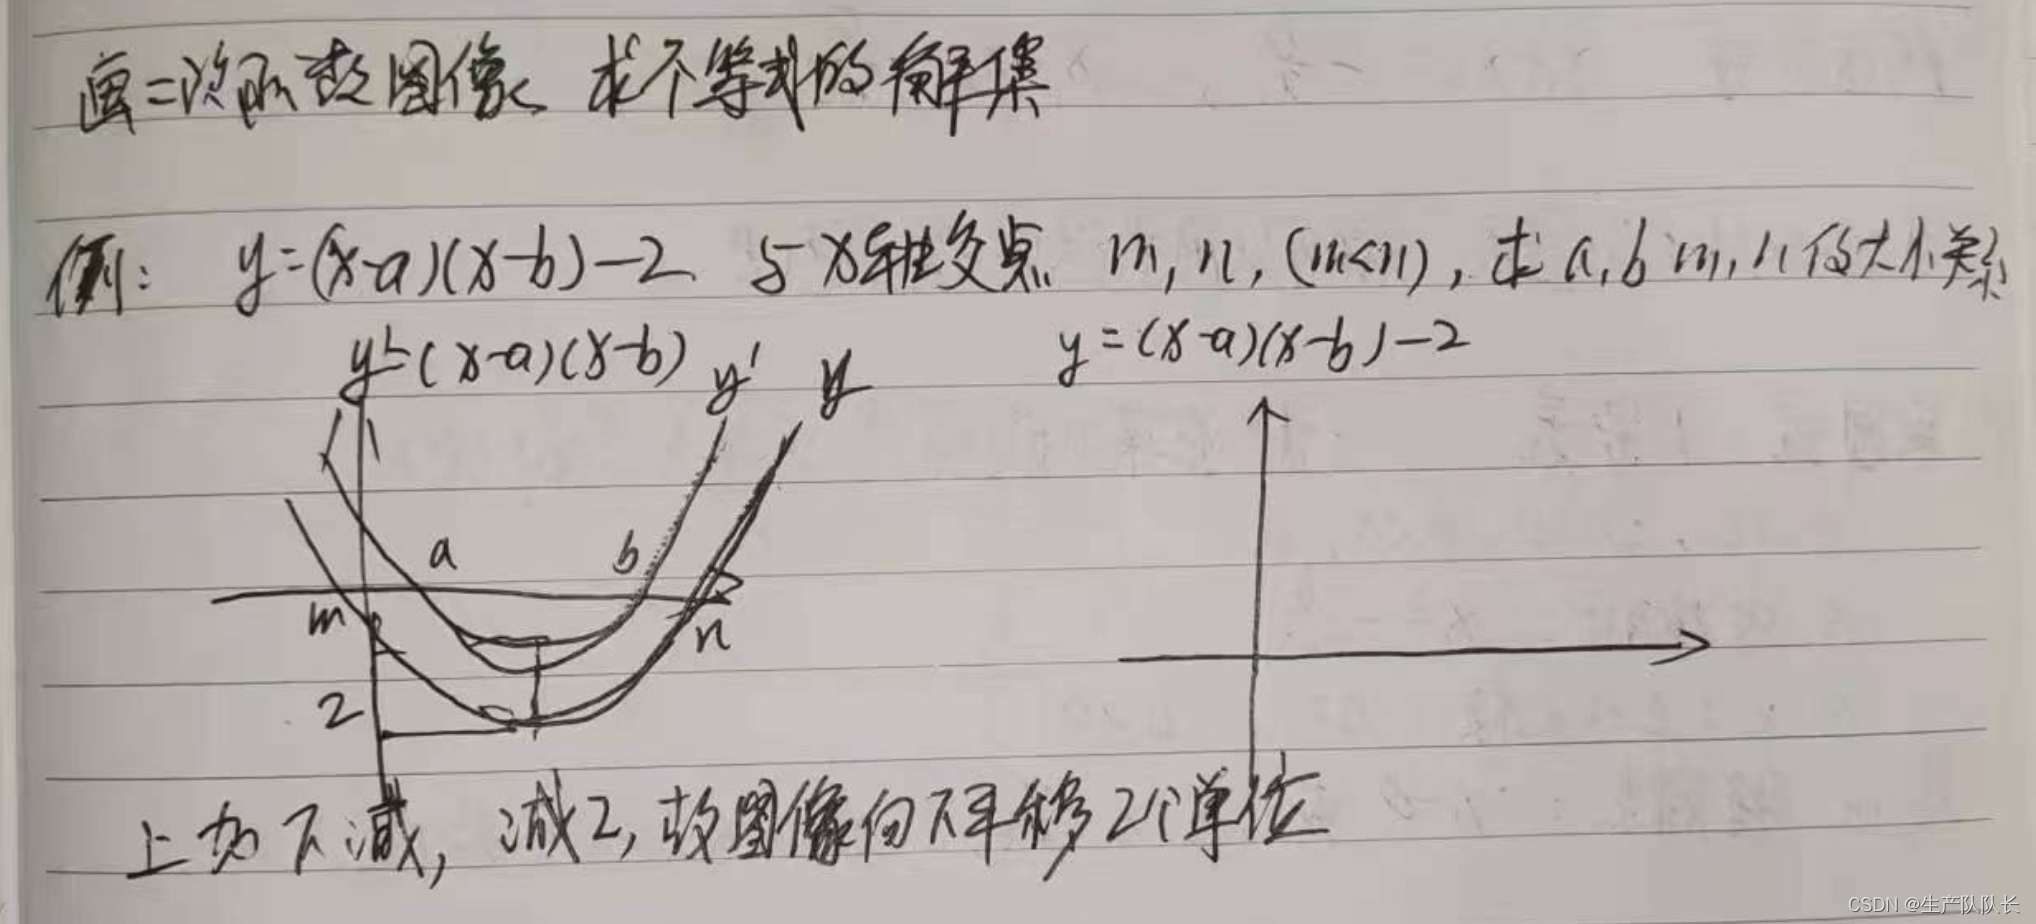 画二次函数图像 求不等式的解集
例: y=(x-a)(x-b)-2 与x轴交点 m, n, (m<n), 求a, b m, n的大小关系
y'=(x-a)(x-b) y' y
y=(x-a)(x-b)-2
a b
m n
2
上加下减, 减2, 故图像向下平移2个单位
CSDN @生产队队长